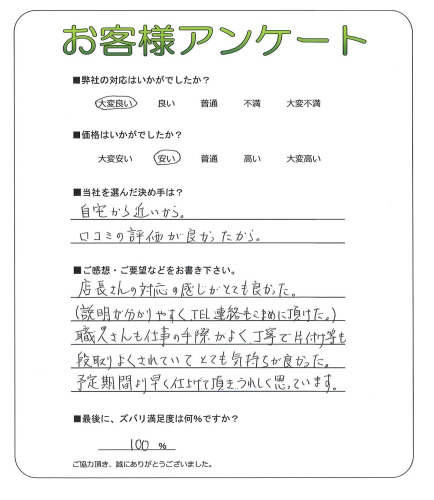 お客様アンケート
■弊社の対応はいかがでしたか？
大変良い 良い 普通 不満 大変不満
■価格はいかがでしたか？
大変安い 安い 普通 高い 大変高い
■当社を選んだ決め手は？
自宅から近いから。
口コミの評価が良かったから。
■ご感想・ご要望などをお書き下さい。
店長さんの対応の感じがとても良かった。
(説明が分かりやすくTEL連絡もこまめに頂けた。)
職人さんも仕事の手際がよく丁寧で片付け等も
段取りよくされていてとても気持ちが良かった。
予定期間より早く仕上げて頂きうれしく思っています。
■最後に、ズバリ満足度は何%ですか？
100 %
ご協力頂き、誠にありがとうございました。